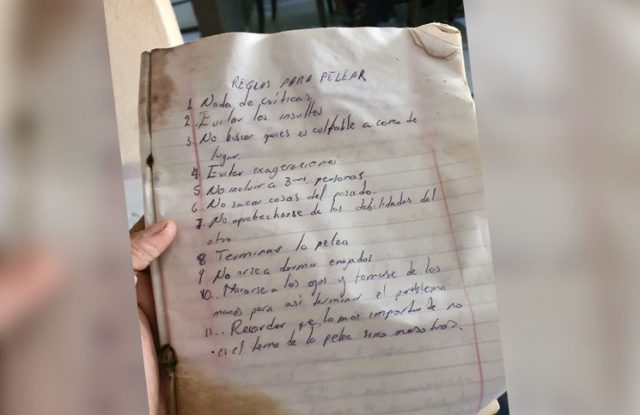 REGLAS PARA PELEAR
1 Nada de críticas
2. Evitar los insultos
3 No buscar quien es culpable a como de
lugar
4 Evitar exageraciones
5 No incluir a 3ras personas
6.. No sacar cosas del pasado.
7. No aprobecharse de las debilidades del
otro
8 Terminar la pelea
9 No irse a dormir enojados
10.. Mirarse a los ojos y tomarse de las
manos para asi terminar el problema
11... Recordar que lo mas importante no
es el tema de la pelea sino nosotros.